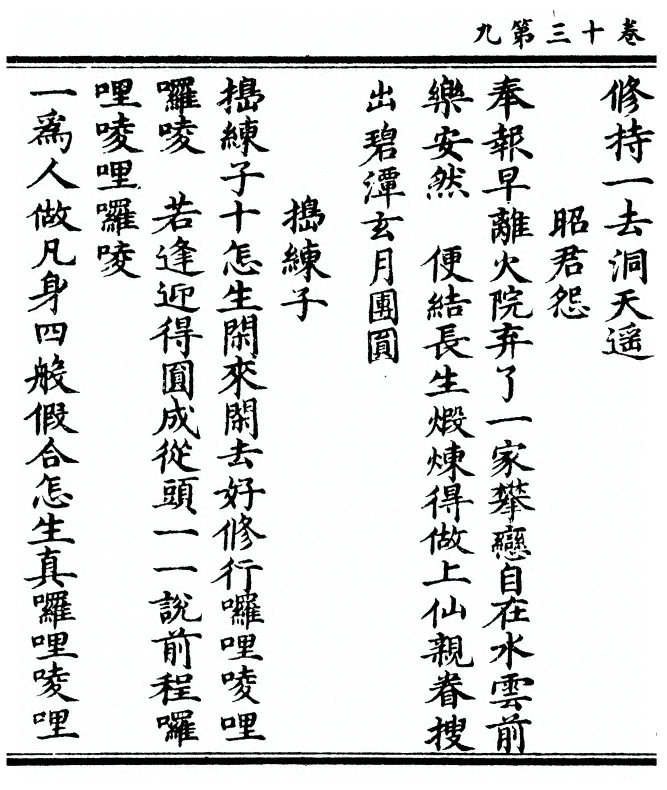 卷十三第九
修持一去洞天遥
昭君怨
奉報早離火院弃了一家攀戀自在水雲前
樂安然　便結長生煅煉得做上仙親眷搜
出碧潭玄月團圓
搗練子
搗練子十怎生閑來閑去好修行囉哩唛哩
囉唛　若逢迎得圓成從頭一一說前程囉
哩唛哩囉唛
一爲人做凡身四般假合怎生真囉哩唛哩